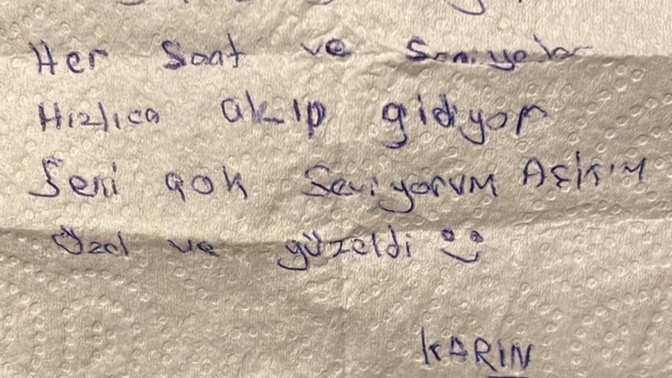 Her Saat ve Saniyeler
Hızlıca akıp gidiyor
Seni çok Seviyorum AŞKIM
Özel ve güzeldi
KARIN